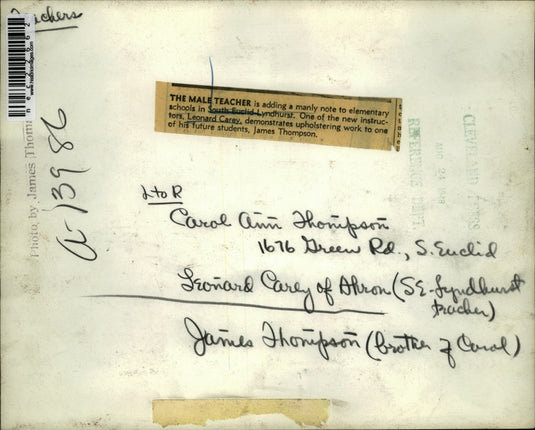 Teachers
THE MALE TEACHER is adding a manly note to elementary
schools in South Euclid-Lyndhurst. One of the new instruc-
tors, Leonard Carey, demonstrates upholstering work to one
of his future students, James Thompson.
L to R
Carol Ann Thompson
1676 Green Rd., S. Euclid
Leonard Carey of Akron (SE-Lyndhurst
teacher)
James Thompson (brother of Carol)
a-13986
Photo by James Thom
CLEVELAND PRESS
AUG 24
REFERENCE DEPT.